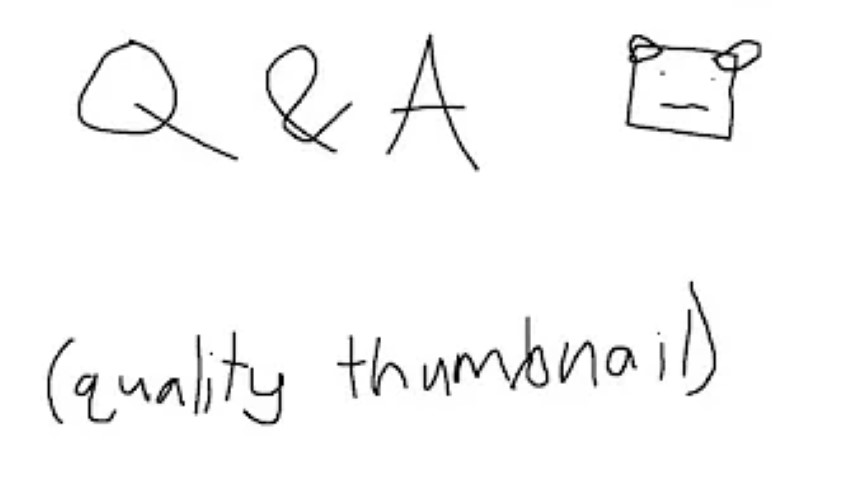 Q & A
(quality thumbnail)